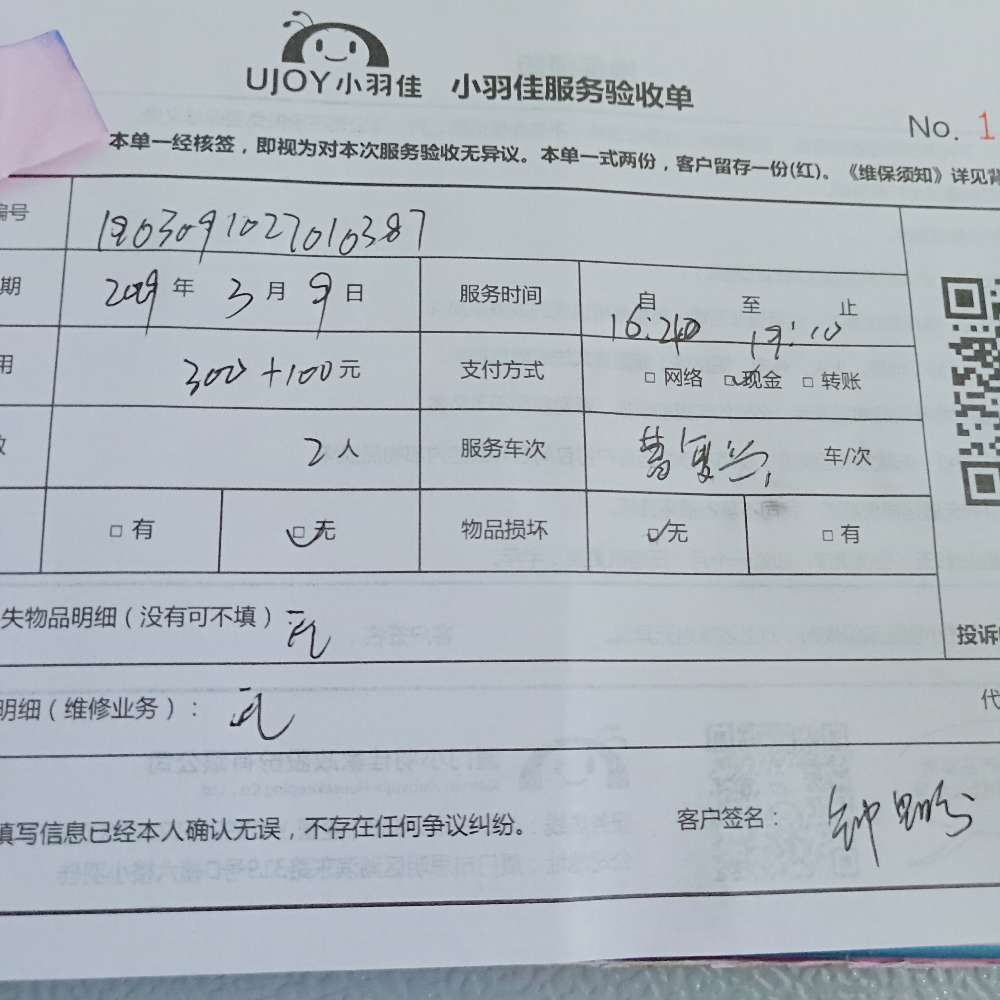 UJOY小羽佳 小羽佳服务验收单
No. 1
本单一经核签，即视为对本次服务验收无异议。本单一式两份，客户留存一份(红)。《维保须知》详见背
编号 1903091027010387
期 2019年3月9日 服务时间 自16:20至19:10止
用 300+100元 支付方式 □网络 ☑现金 □转账
数 2人 服务车次 车/次
□有 ☑无 物品损坏 ☑无 □有
失物品明细（没有可不填）：无
投诉
明细（维修业务）：无
代
填写信息已经本人确认无误，不存在任何争议纠纷。 客户签名：钟